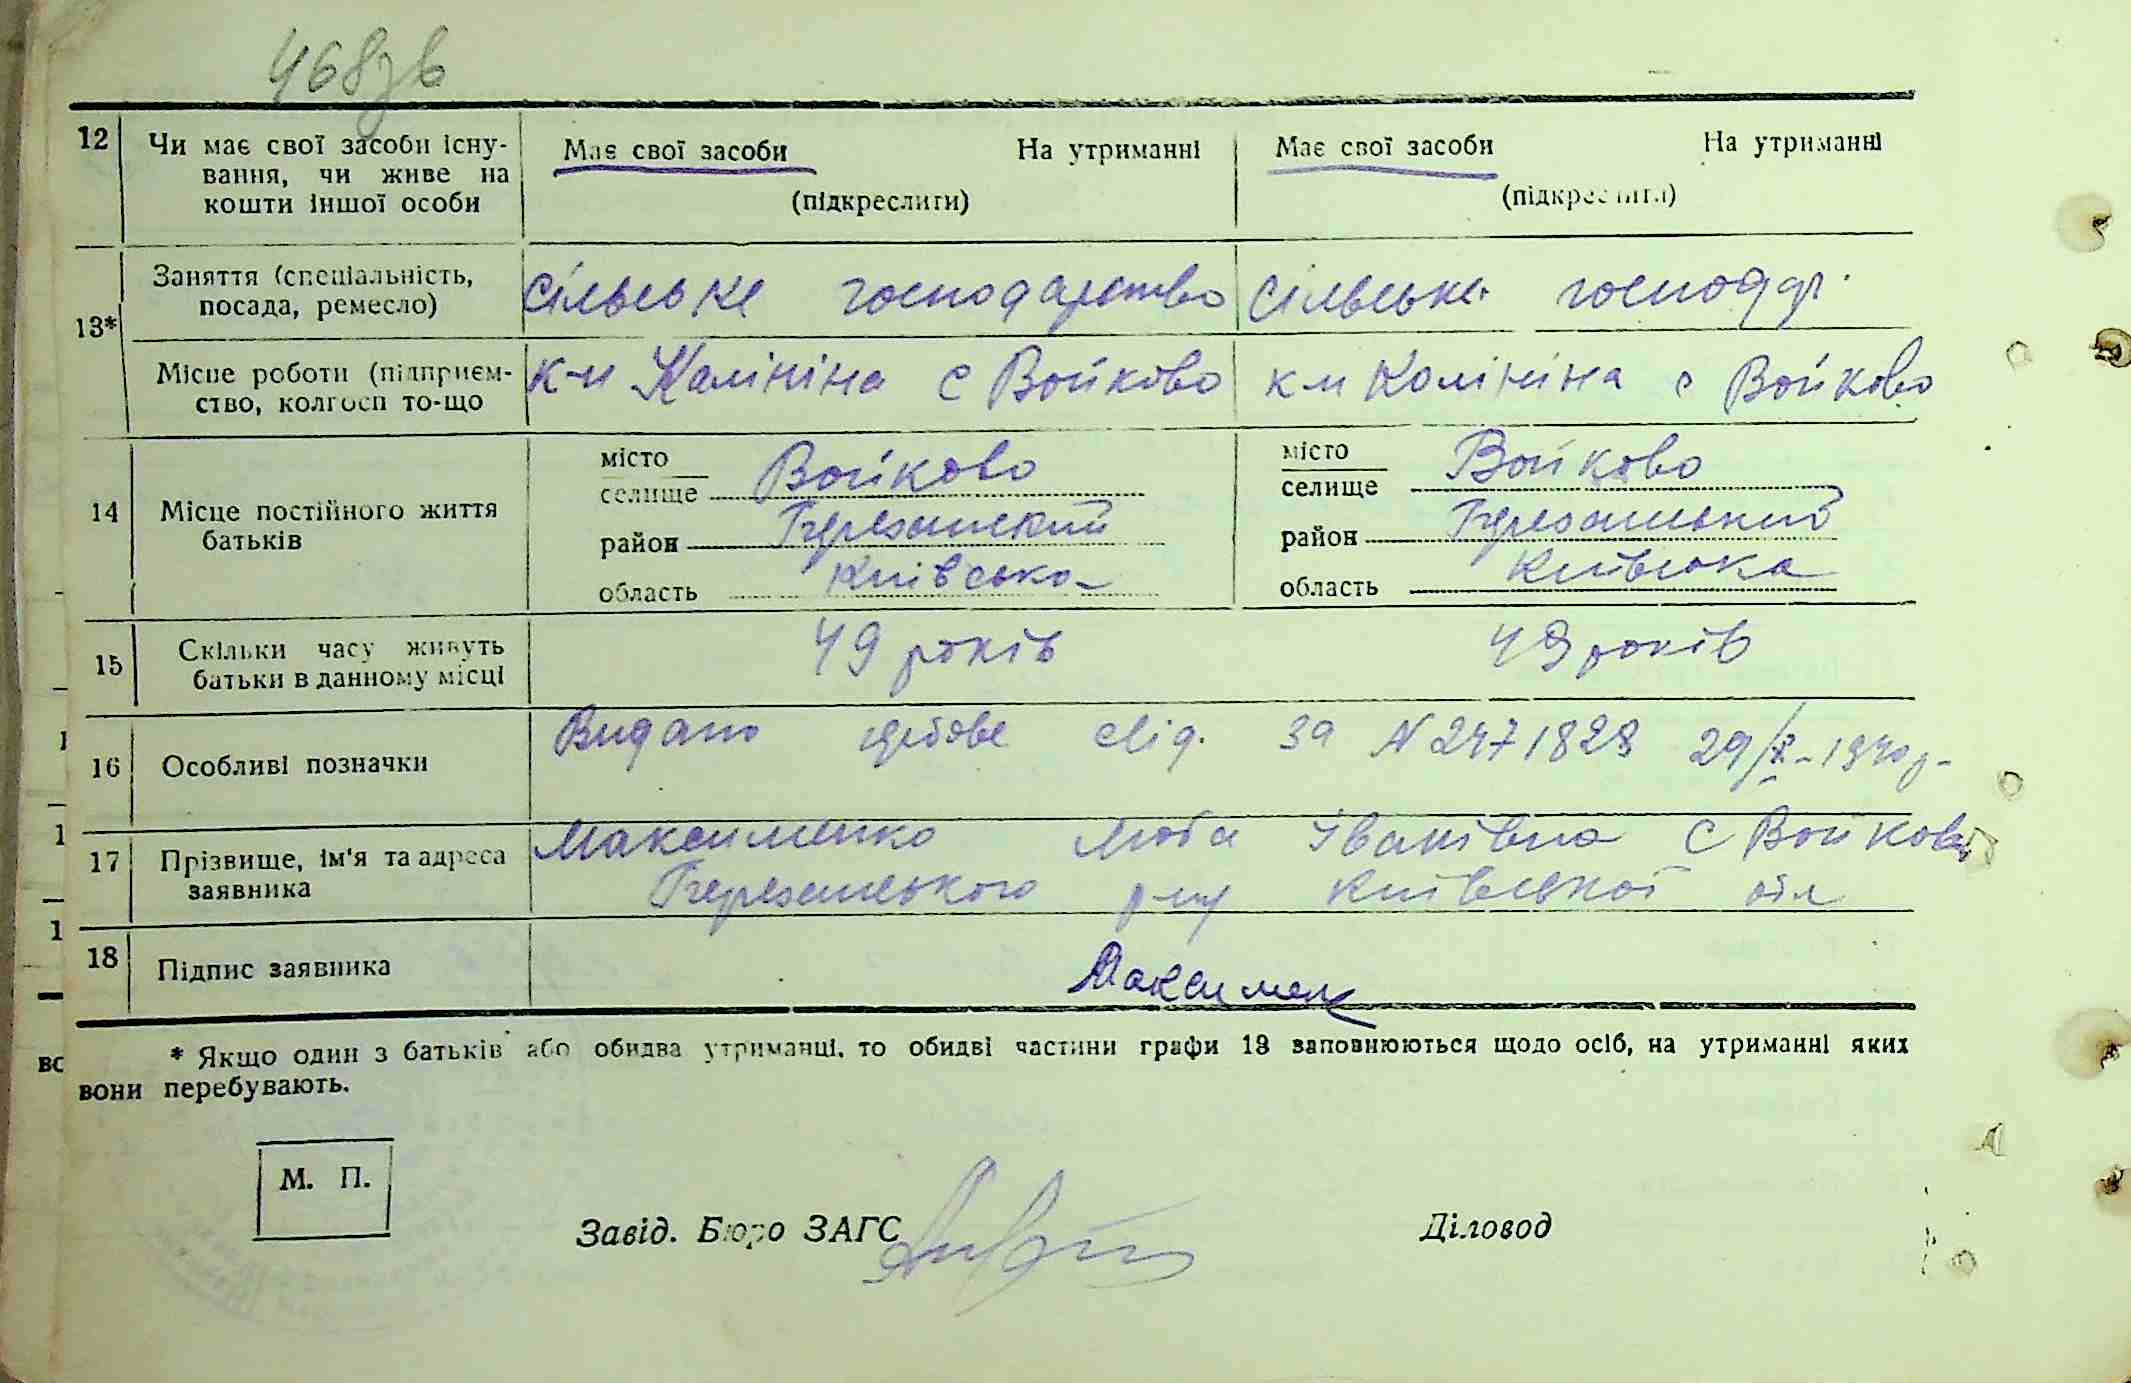 468зв
12 Чи має свої засоби існу- Має свої засоби На утриманні Має свої засоби На утриманні
вання, чи живе на
кошти іншої особи (підкреслити) (підкреслити)
Заняття (спеціальність, сільське господарство сільське господар
13* посада, ремесло)
Місце роботи (підприєм- к-м Калініна с Войково к-м Калініна с Войково
ство, колгосп то-що
місто Войково місто Войково
селище селище
14 Місце постійного життя район Березанський район Березанський
батьків
область Київська область Київська
15 Скільки часу живуть 49 років 49 років
батьки в данному місці
16 Особливі позначки Видано свід. за N 2471828 29/ 1940р
17 Прізвище, ім'я та адреса Максименко Люба Іванівна с Войково
заявника Березанського р-ну Київської обл
18 Підпис заявника Максимен
* Якщо один з батьків або обидва утриманці, то обидві частини графи 13 заповнюються щодо осіб, на утриманні яких
вони перебувають.
М. П.
Завід. Бюро ЗАГС Діловод